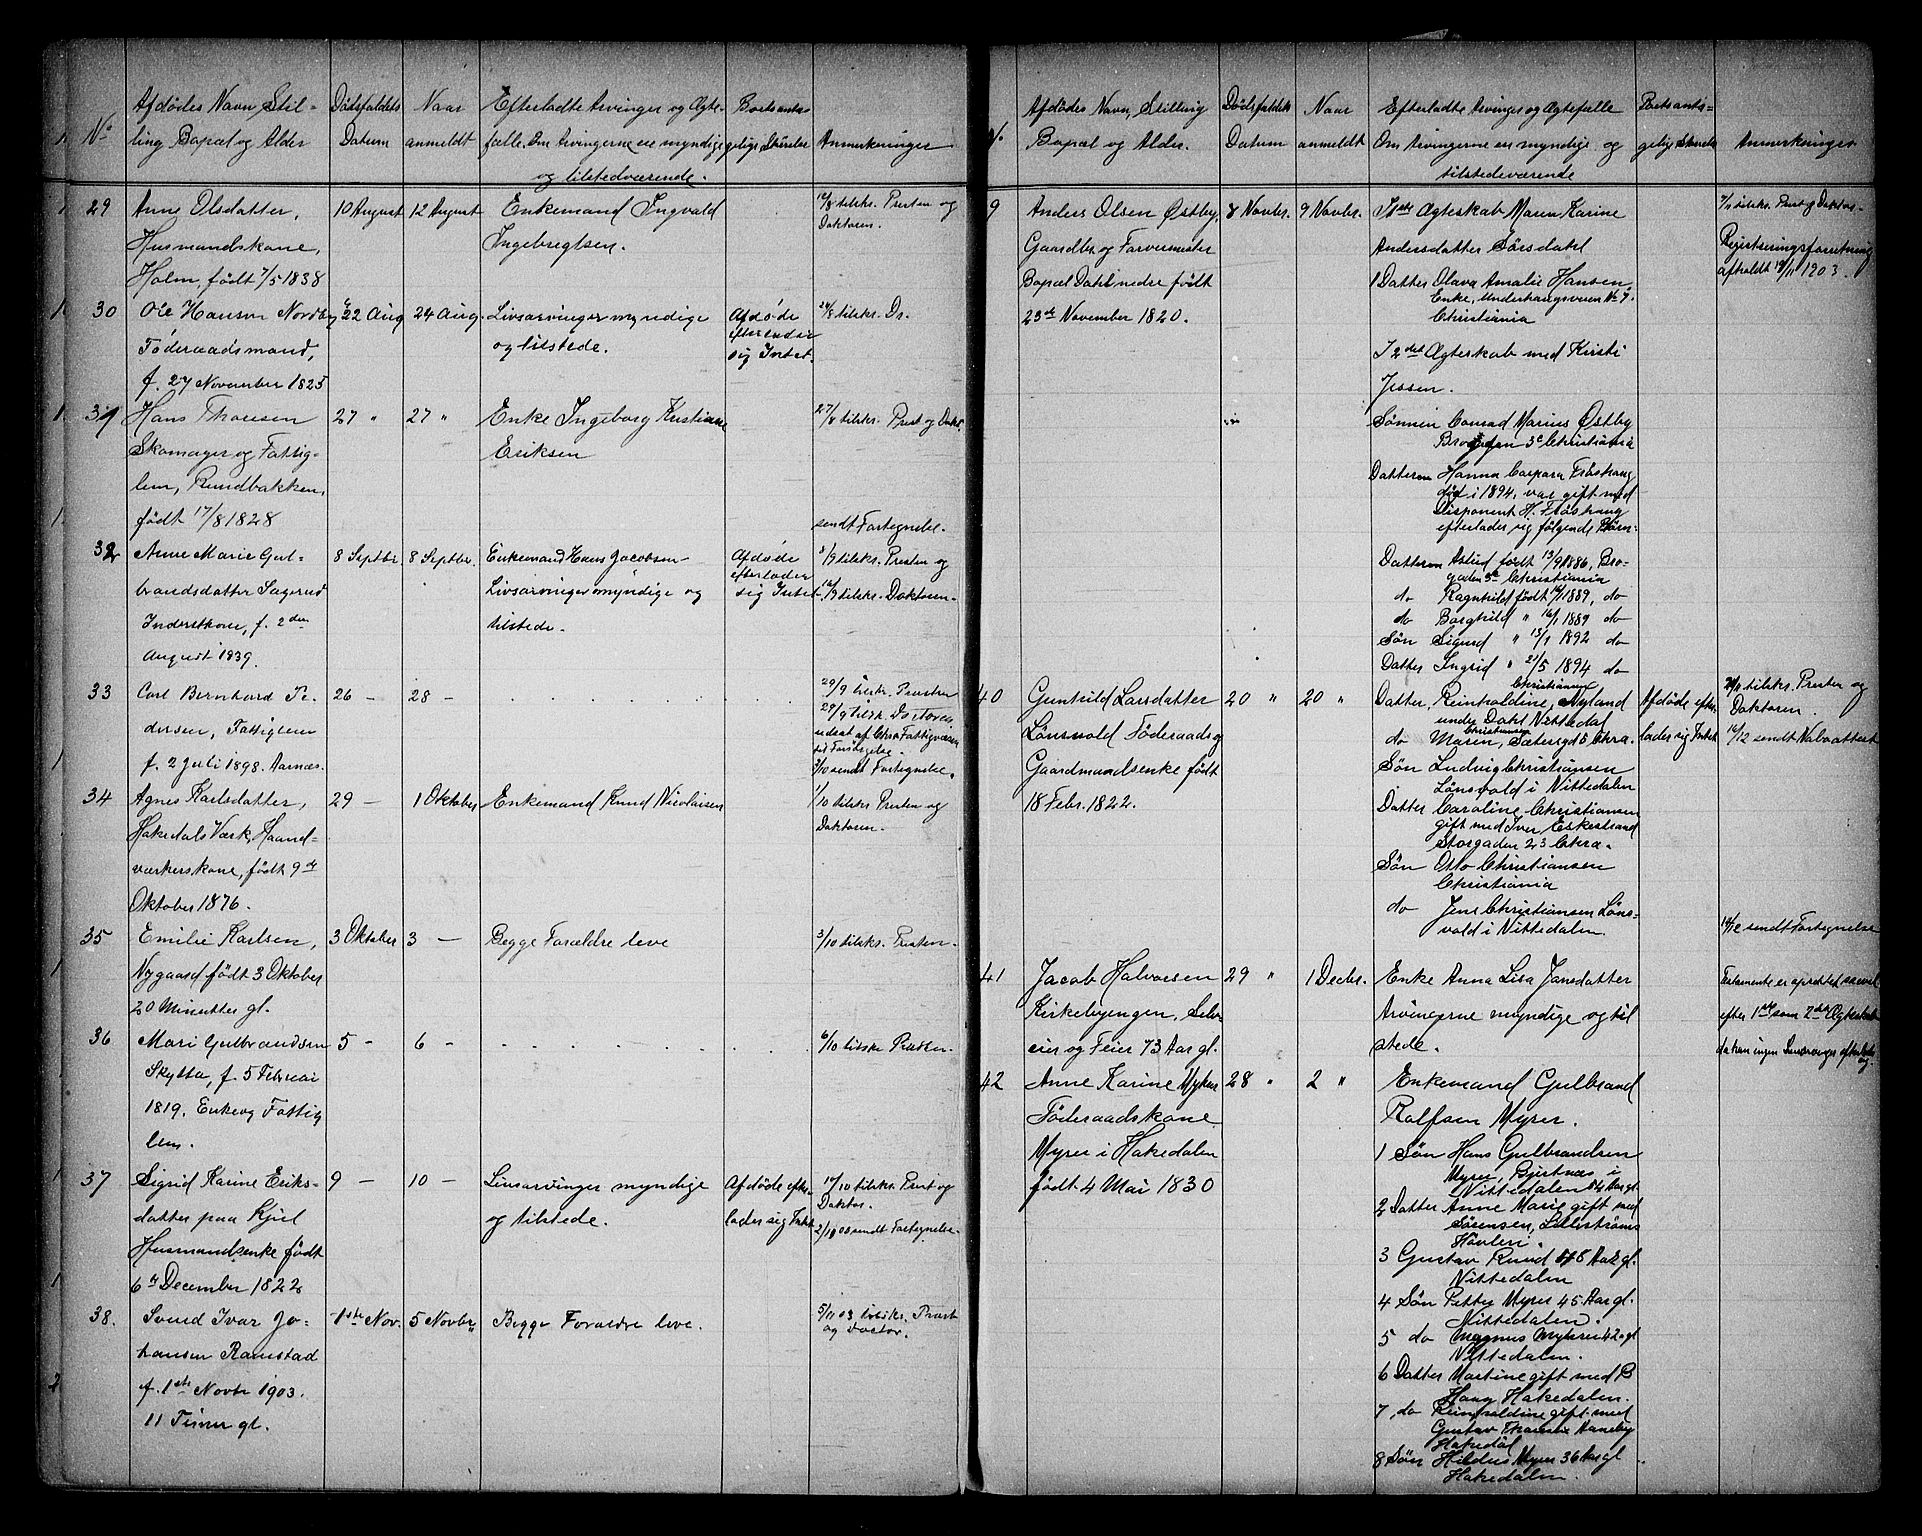 No
Afdødes Navn Stil-
ling Bopæl og Alder
Dødsfaldets
Datum
Naar
anmeldt
Efterladte Arvinger og Ægte-
fælle. Om Arvingerne ere myndige
og tilstedværende.
Boetsanta-
gelige Størrelse
Anmerkninger
29
Anne Olsdatter,
Husmandskone,
Holm, født 7/5 1838
10 August
12 August
Enkemand Ingvald
Ingebregtsen.
12/8 tilskr. Presten og
Doktoren.
30
Ole Hansen Nordby
Føderaadsmand,
f. 27 November 1825
22 Aug
24 Aug.
Livsarvinger myndige
og tilstede.
Afdøde
efterlader
sig Intet.
24/8 tilskr. Dr.
31
Hans Thoresen
Skomager og Fattig-
lem, Rundbakken,
født 17/8 1828
27 "
27 "
Enke Ingeborg Kristiane
Eriksen
27/8 tilskr. Prest og Dokt.
sendt Fortegnelse.
32
Anne Marie Gul-
brandsdatter Sagerud
Inderstkone, f. 2den
August 1839.
8 Septbr.
8 Septbr.
Enkemand Hans Jacobsen
Livsarvinger myndige og
tilstede.
Afdøde
efterlader
sig Intet
8/9 tilskr. Presten og
12/9 tilskr. Doktoren.
33
Carl Bernhard Pe-
dersen, Fattiglem
f. 2 Juli 1898. Aarnæs.
26 -
28 -
29/9 tilskr. Presten
29/9 tilskr. Doctoren
udsat af Chra Fattigvæsen
3/10 sendt Fortegnelse.
34
Agnes Karlsdatter,
Hakedals Værk, Haand-
værkerskone, født 9de
Oktober 1876.
29 -
1 Oktober
Enkemand Knud Nicolaisen
1/10 tilskr. Presten og
Doktoren.
35
Emilie Karlsen,
Nygaard født 3 Oktober
20 Minutter gl.
3 Oktober
3 -
Begge Forældre leve
3/10 tilskr. Presten.
36
Mari Gulbrandsen
Skytta, f. 5 Februar
1819, Enke og Fattig
lem.
5 -
6 -
6/10 tilskr Presten.
37
Sigrid Karine Eriks-
datter paa Kjul
Husmandsenke født
6te December 1822
9 -
10 -
Livsarvinger myndige
og tilstede.
Afdøde efter-
lader sig Intet
10/10 tilskr. Prest og
Doktor.
2/10 03 sendt Fortegnelse.
38.
Svend Ivar Jo-
hansen Ramstad
f. 1ste Novbr 1903.
11 Timer gl.
1ste Nov.
5 Novbr
Begge Forældre leve.
5/11 03 tilskr. Prest
og Doctor.
Afdødes Navn, Stilling
Bopæl og Alder.
Dødsfaldets
Datum
Naar
anmeldt
Efterladte Arvinger og Ægtefælle
Om Arvingerne ere myndige og
tilstedeværende
Boetsanta-
gelige Størrelse
Anmerkninger
9
Anders Olsen Østby
Gaardbr. og Farvermester
Bopæl Dahl nedre født
23de November 1820.
8 Novbr.
9 Novbr.
I 1ste Ægteskab Maren Karine
Andersdatter Sørsdahl
1 Datter Olava Amalie Hansen
Enke, Underhaugsveien No 7.
Christiania
I 2det Ægteskab med Kirsti
Jessen.
Sønnen Conrad Marius Østby
Brogaden 3c Christiania
Datteren Hanna Caspara Frøshaug
død i 1894, var gift med
Disponent H. Frøshaug
efterlader sig følgende Børn-
Datteren Astrid født 13/9 1886, Bro-
gaden 3c Christiania
do Ragnhild født 16/1 1889, do
do Borghild " 16/1 1889 do
Søn Sigurd " 13/1 1892 do
Datter Ingrid " 21/5 1894 do
9/11 tilskr. Prest og Doktor.
Registreringsforretning
afholdt 19/11 1903.
40
Gunhild Larsdatter
Lønsvold Føderaads og
Gaardmandsenke født
18 Febr. 1822.
20 "
20 "
Christiansen
Datter, Reinholdine, Nyland
under Dahl Nittedal
Christiansen
do Maren, Sætersgd 5 Chra.
Søn Ludvig Christiansen
Lønsvold i Nittedalen
Datter Caroline Christiansen
gift med Iver Eskestrand
Storgaden 23 Chra.
Søn Otto Christiansen
Christiania
do Jens Christiansen Løns-
vold i Nittedalen.
Afdøde efter-
lader sig Intet
20/11 tilskr. Presten og
Doktoren.
16/12 sendt Valoattest
14/12 sendt Fortegnelse
41
Jacob Halvorsen
Kirkebyengen, Selv-
eier og Feier 73 Aar gl.
29 "
1 Decbr.
Enke Anna Lisa Jansdatter
Arvingerne myndige og til
stede.
Testamente er oprettet saavel
efter 1ste som 2det Ægteskab
da han ingen Livsarvinger efterlader
sig.
42
Anne Karine Myhrer
Føderaadskone
Myrer i Hakedalen
født 4 Mai 1830
28 "
2 "
Enkemand Gulbrand
Rolfsen Myrer.
1 Søn Hans Gulbrandsen
Myrer, Bjertnæs i
Nittedalen 54 Aar gl
2 Datter Anne Marie gift med
Sørensen, Lillestrøms
Høvleri.
3 Gustav Knud 48 Aar gl.
Nittedalen
4 Søn Petter Myrer 45 Aar gl.
Nittedalen.
5 do Magnus Myhrer 42 gl
Nittedalen.
6 Datter Martine gift med B
Haug Hakedalen.
7, do Reinholdine gift med
Gustav Thoresen Aaneby
Hakedal
8 Søn Hildus Myrer 36 Aar gl
Hakedalen.